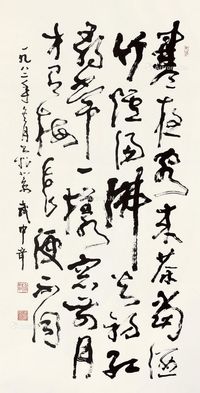 寒夜客来茶當酒
竹爐湯沸火初紅
尋常一樣窗前月
才有梅花便不同
一九八二年月於武中奇